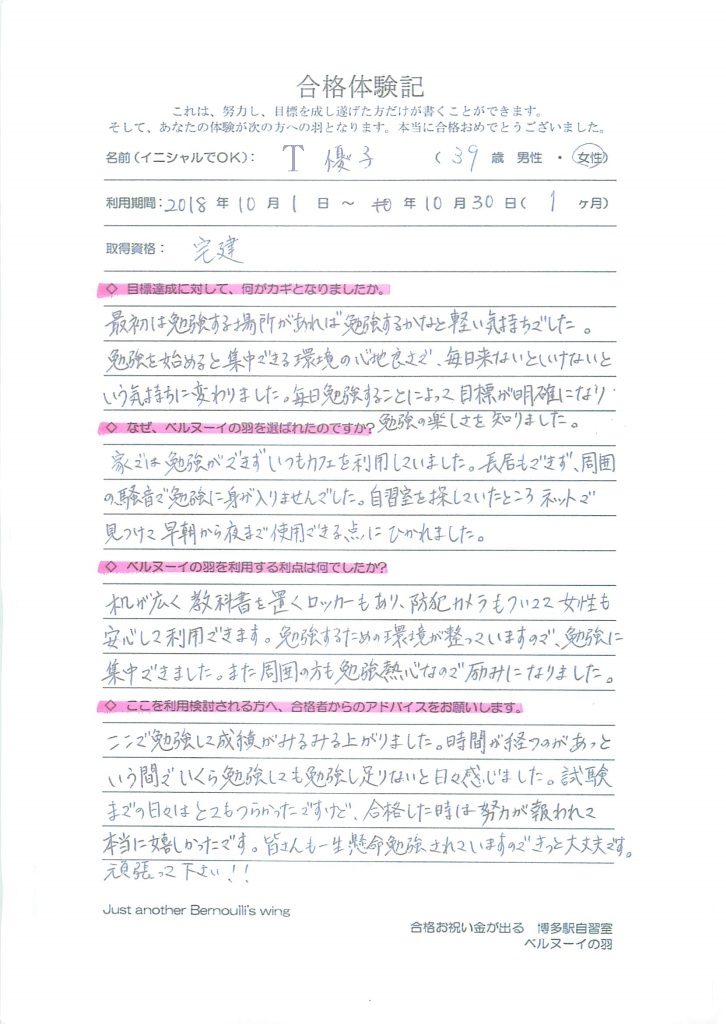 合格体験記
これは、努力し、目標を成し遂げた方だけが書くことができます。
そして、あなたの体験が次の方への羽となります。本当に合格おめでとうございました。
名前(イニシャルでOK): T 優子 ( 39 歳 男性 ・ 女性)
利用期間: 2018 年 10 月 1 日 ～ 年 10 月 30 日 ( 1 ヶ月)
取得資格: 宅建
◇ 目標達成に対して、何がカギとなりましたか。
最初は勉強する場所があれば勉強するかなと軽い気持ちでした。
勉強を始めると集中できる環境の心地良さで、毎日来ないといけないと
いう気持ちに変わりました。毎日勉強することによって目標が明確になり
勉強の楽しさを知りました。
◇ なぜ、ベルヌーイの羽を選ばれたのですか?
家では勉強ができずいつもカフェを利用していました。長居もできず、周囲
の騒音で勉強に身が入りませんでした。自習室を探していたところネットで
見つけて早朝から夜まで使用できる点にひかれました。
◇ ベルヌーイの羽を利用する利点は何でしたか?
机が広く教科書を置くロッカーもあり、防犯カメラもついてて女性も
安心して利用できます。勉強するための環境が整っていますので、勉強に
集中できました。また周囲の方も勉強熱心なので励みになりました。
◇ ここを利用検討される方へ、合格者からのアドバイスをお願いします。
ここで勉強して成績がみるみる上がりました。時間が経つのがあっと
いう間でいくら勉強しても勉強し足りないと日々感じました。試験
までの日々はとてもつらかったですけど、合格した時は努力が報われて
本当に嬉しかったです。皆さんも一生懸命勉強されていますのできっと大丈夫です。
頑張って下さい!!
Just another Bernouili's wing
合格お祝い金が出る 博多駅自習室
ベルヌーイの羽